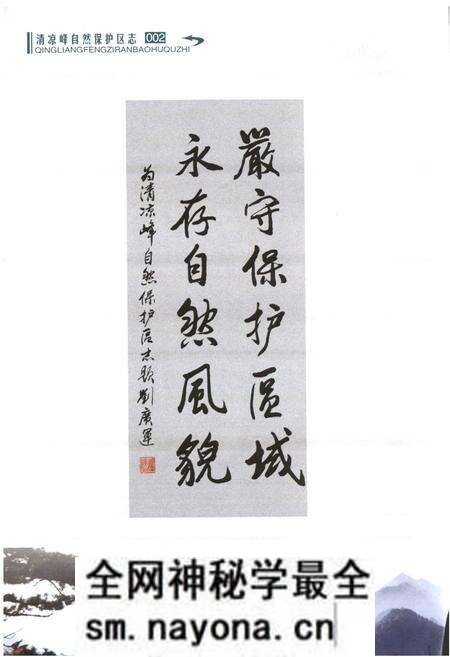 清凉峰自然保护区志 002
QINGLIANGFENGZIRANBAOHUQUZHI
嚴守保护區域
永存自然風貌
为清凉峰自然保护區志题劉廣運
全网神秘学最全
sm.nayona.cn